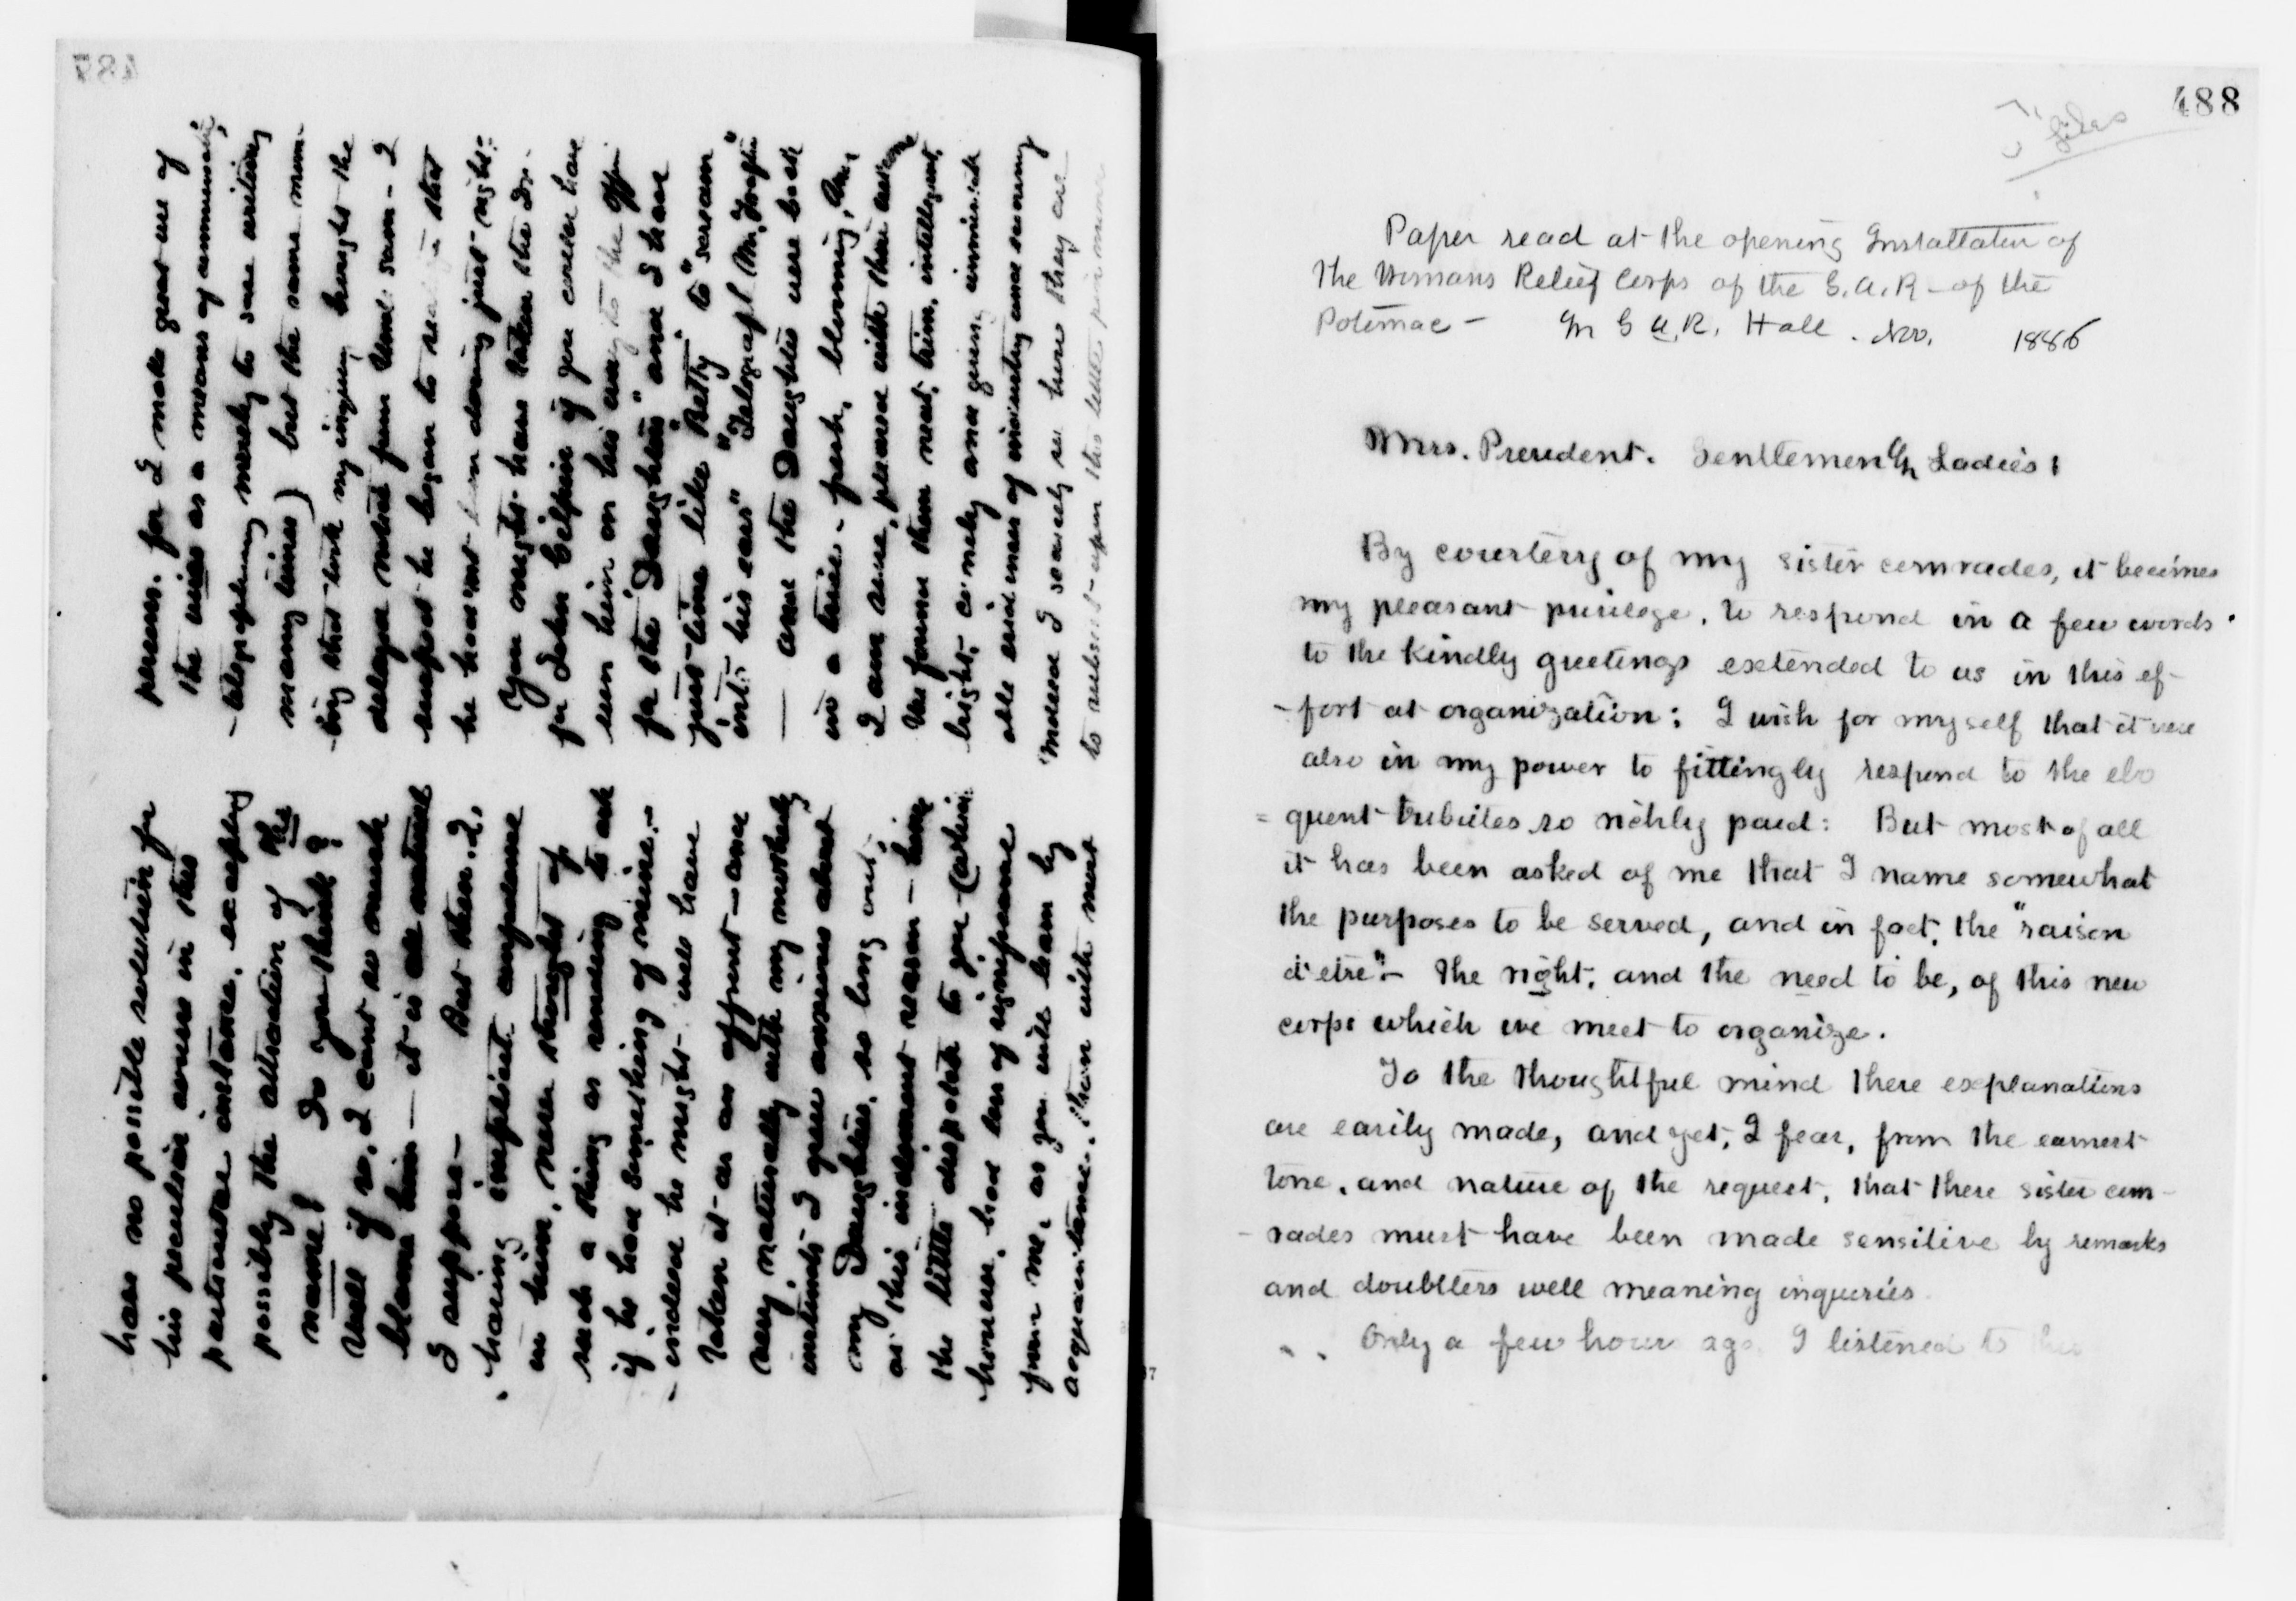 487
has no possible solution for
his peculiar course in this
particular instance, excepting
possibly the attraction of the
name! Do you think?
Well if so, I cant so much
blame him — it is as natural
I suppose — But then, I,
having implicit confidence
in him, never thought of
such a thing as sending to ask
if he had something of mine. —
indeed he might well have
taken it as an affront — and
very naturally with my
I gave answers about
my Daughters, so long ago,
as this indecent reason —
the little despatch to you
however, had less of significance
from me, as you will learn by
acquaintance, than with most
persons. for I make great use of
the wires as a means of communication
telegraphing merely to save writing
many times) but the same morn-
ing that took my inquiry brought the
delayed matter from Uncl. Sam — I
suspect he began to that
he had not been doing just right:
You might have taken the Dr.
for John Gilpin if you could have
seen him on his way to the office
for the "Daughters" and I have
just time like "Betty" to "scream
into his ears" "Telegraph Mr. "
— and the Daughters were back
in a trice — fresh, blooming, and
I am sure, pleased with their
We found them neat, trim, intelligent,
bright, comely and giving
able evidences of
indeed I scarcely see how they can
to subsist upon this little
488
files
Paper read at the opening Installation of
the Womans Relief Corps of the G.A.R — of the
Potomac — In G A.R. Hall. Nov. 1886
Mrs. President. Gentlemen & Ladies!
By courtesy of my sister comrades, it becomes
my pleasant privilege, to respond in a few words
to the kindly greetings extended to us in this ef-
-fort at organization: I wish for myself that it were
also in my power to fittingly respond to the elo
=quent tributes so richly paid: But most of all
it has been asked of me that I name somewhat
the purposes to be served, and in fact, the "raison
d'etre" — the right, and the need to be, of this new
corps which we meet to organize.
To the thoughtful mind these explanations
are easily made, and yet, I fear, from the earnest
tone, and nature of the request, that these sister com-
-rades must have been made sensitive by remarks
and doubtless well meaning inquiries
Only a few hours ago I listened to